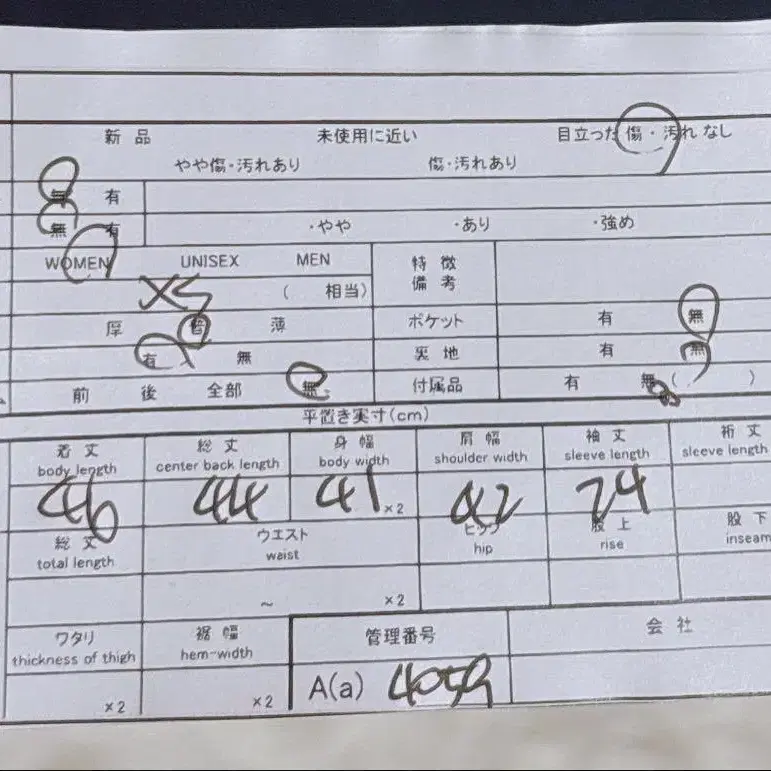 新品 未使用に近い 目立った傷・汚れなし
やや傷・汚れあり 傷・汚れあり
無 有
無 有 ・やや ・あり ・強め
WOMEN UNISEX MEN 特徴
備考
XS ( 相当)
厚 普 薄 ポケット 有 無
有 無 裏地 有 無
前 後 全部 無 付属品 有 無 ( )
平置き実寸(cm)
着丈 総丈 身幅 肩幅 袖丈 裄丈
body length center back length body width shoulder width sleeve length sleeve length
46 44 41 ×2 42 24
総丈 ウエスト ヒップ 股上 股下
total length waist hip rise inseam
~ ×2
ワタリ 裾幅 管理番号 会社
thickness of thigh hem-width
×2 ×2 A(a) 4059